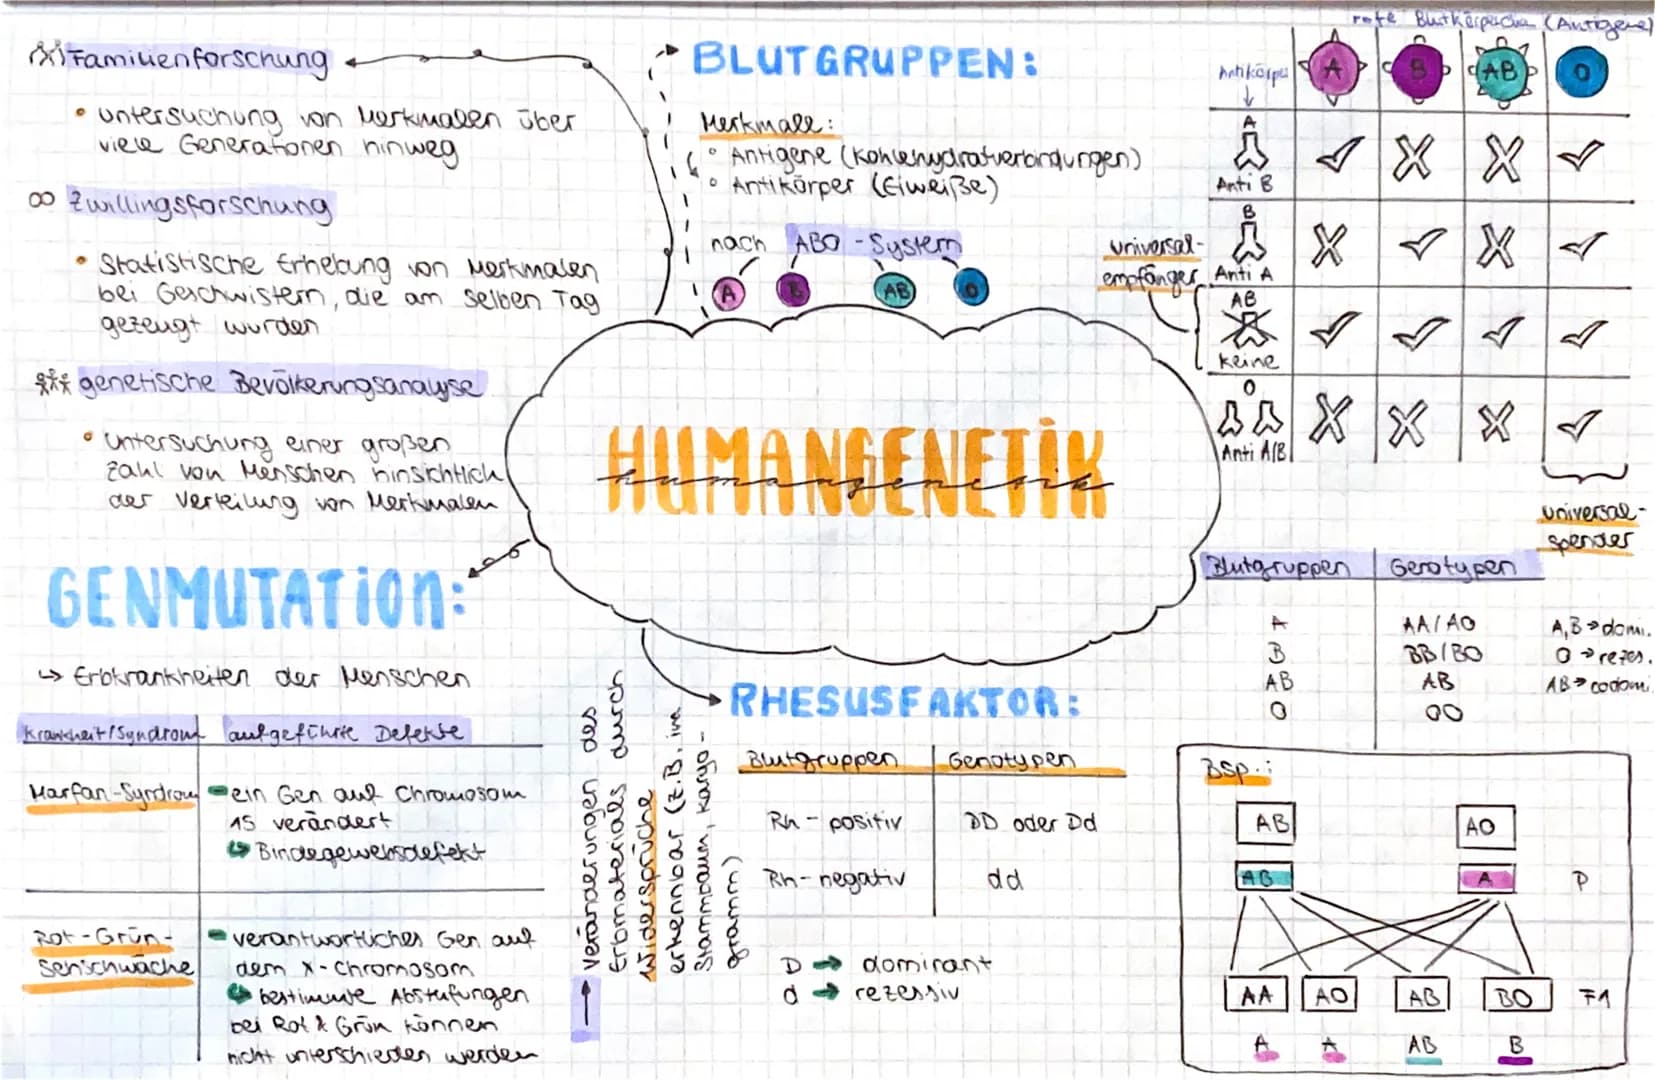 Familienforschung
• Untersuchung von Merkmalen über
viele Generationen hinweg
∞ Zwillingsforschung
• Statistische Erhebung von Merkmalen
bei Geschwistern, die am selben Tag
gezeugt wurden
genetische Bevölkerungsanalyse
• Untersuchung einer großen
Zahl von Menschen hinsichtlich
der Verteilung von Merkmalen
BLUTGRUPPEN:
Merkmale:
° Antigene (Kohlenhydratverbindungen)
° Antikörper (Eiweiße)
nach ABO-System
A B AB O
rote Blutkörperchen (Antigene)
Antikörper
A B AB O
A
Anti B
B
Anti A
AB
Keine
O
Anti A/B
universal-
empfänger
universal-
spender
HUMANGENETIK
humangenetik
GENMUTATION:
↳ Erbkrankheiten der Menschen
Krankheit/Syndrom aufgeführte Defekte
Marfan-Syndrom
- ein Gen auf Chromosom
15 verändert
↳ Bindegewebsdefekt
Rot-Grün-
Sehschwäche
- verantwortliches Gen auf
dem X-Chromosom
↳ bestimmte Abstufungen
bei Rot & Grün können
nicht unterschieden werden
→ Veränderungen des
Erbmaterials durch
Widersprüche
erkennbar (z.B. im
Stammbaum, Karyo-
gramm)
RHESUSFAKTOR:
Blutgruppen Genotypen
Rh-positiv DD oder Dd
Rh-negativ dd
D → dominant
d → rezessiv
Blutgruppen Genotypen
A AA/AO A,B → domi.
B BB/BO O → rezes.
AB AB AB → codomi.
O OO
Bsp.:
AB AO
AB A P
AA AO AB BO F1
A A AB B